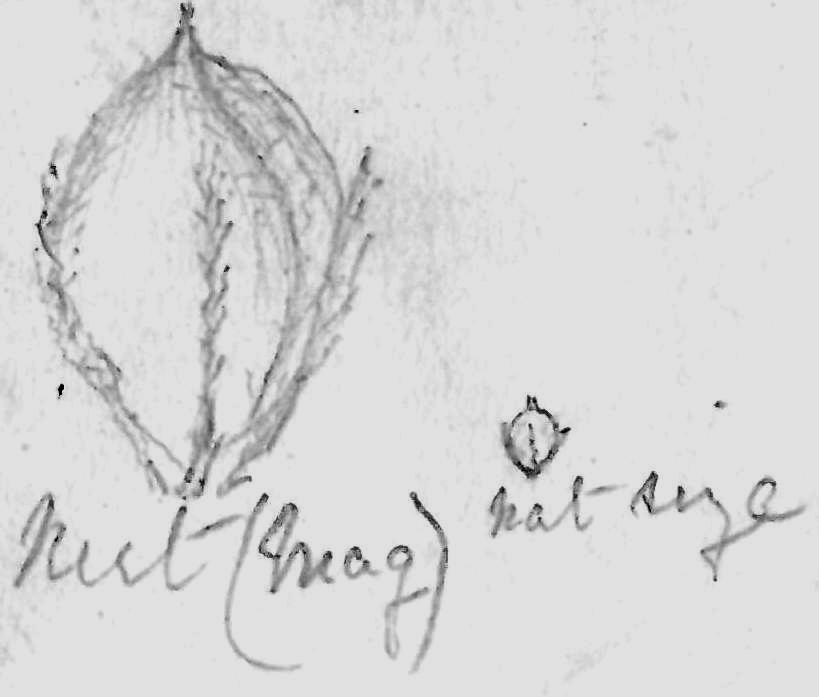 Nut (mag)
nat size